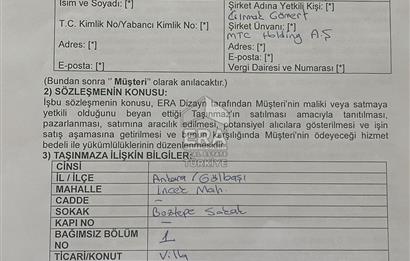 İsim ve Soyadı: [*]
Şirket Adına Yetkili Kişi: [*]
T.C. Kimlik No/Yabancı Kimlik No: [*]
Şirket Ünvanı: [*]
MTC Holding A.Ş
Adres: [*]
Adres: [*]
E-posta: [*]
E-posta: [*]
Vergi Dairesi ve Numarası [*]
(Bundan sonra " Müşteri" olarak anılacaktır.)
2) SÖZLEŞMENİN KONUSU:
İşbu sözleşmenin konusu, ERA Dizayn tarafından Müşteri'nin maliki veya satmaya
yetkili olduğunu beyan ettiği Taşınmaz'ın satılması amacıyla tanıtılması,
pazarlanması, satımına aracılık edilmesi, potansiyel alıcılara gösterilmesi ve işin
satış aşamasına getirilmesi ve bunun karşılığında Müşteri'nin ödeyeceği hizmet
bedeli ile yükümlülüklerinin düzenlenmesidir.
ERA
REAL ESTATE
TÜRKİYE
3) TAŞINMAZA İLİŞKİN BİLGİLER:
CİNSİ
İL / İLÇE Ankara / Gölbaşı
MAHALLE İncek Mah.
CADDE –
SOKAK Boztepe Sokak
KAPI NO –
BAĞIMSIZ BÖLÜM
NO 1
TİCARİ/KONUT Villa